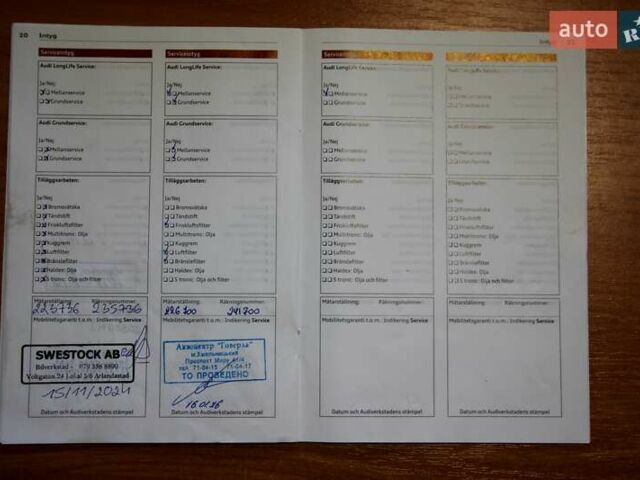 auto
R
20 Intyg
Intyg 21
Serviceintyg
Audi LongLife Service:
Ja/Nej
Mellanservice
Grundservice
Audi Grundservice:
Ja/Nej
Mellanservice
Grundservice
Tilläggsarbeten:
Ja/Nej
Bromsvätska
Tändstift
Friskluftsfilter
Multitronic: Olja
Kuggrem
Luftfilter
Bränslefilter
Haldex: Olja
S tronic: Olja och filter
Mätarställning: Räkningsnummer:
223736 235736
Mobilitetsgaranti t.o.m.: Indikering Service
SWESTOCK AB
Bilverkstad - 079 338 8800
15/11/2024
Datum och Audiverkstadens stämpel
Serviceintyg
Audi LongLife Service:
Ja/Nej
Mellanservice
Grundservice
Audi Grundservice:
Ja/Nej
Mellanservice
Grundservice
Tilläggsarbeten:
Ja/Nej
Bromsvätska
Tändstift
Friskluftsfilter
Multitronic: Olja
Kuggrem
Luftfilter
Bränslefilter
Haldex: Olja
S tronic: Olja och filter
Mätarställning: Räkningsnummer:
226 700 241 700
Mobilitetsgaranti t.o.m.: Indikering Service
Автоцентр "Говерла"
м.Хмельницький
Проспект Миру
тел. 71-04-15 71-04-17
ТО ПРОВЕДЕНО
16.01.26
Datum och Audiverkstadens stämpel
Serviceintyg
Audi LongLife Service:
Ja/Nej
Mellanservice
Grundservice
Audi Grundservice:
Ja/Nej
Mellanservice
Grundservice
Tilläggsarbeten:
Ja/Nej
Bromsvätska
Tändstift
Friskluftsfilter
Multitronic: Olja
Kuggrem
Luftfilter
Bränslefilter
Haldex: Olja
S tronic: Olja och filter
Mätarställning: Räkningsnummer:
Mobilitetsgaranti t.o.m.: Indikering Service
Datum och Audiverkstadens stämpel
Serviceintyg
Audi LongLife Service:
Ja/Nej
Mellanservice
Grundservice
Audi Grundservice:
Ja/Nej
Mellanservice
Grundservice
Tilläggsarbeten:
Ja/Nej
Bromsvätska
Tändstift
Friskluftsfilter
Multitronic: Olja
Kuggrem
Luftfilter
Bränslefilter
Haldex: Olja
S tronic: Olja och filter
Mätarställning: Räkningsnummer:
Mobilitetsgaranti t.o.m.: Indikering Service
Datum och Audiverkstadens stämpel